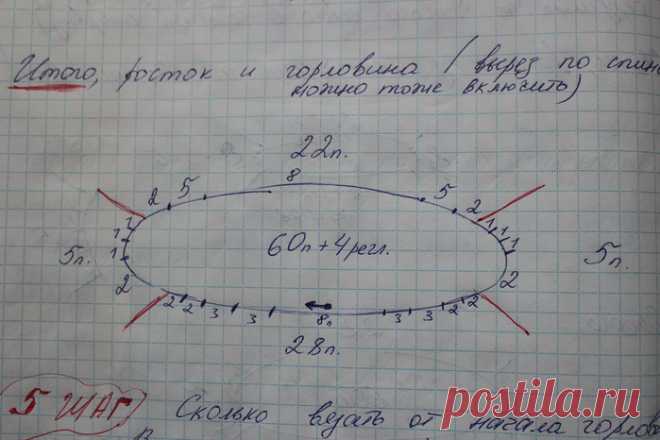 Итого, росток и горловина (вырез по спине
можно тоже включить)
22п.
2 5 8 5 2
1 1 1 1 1 1
5п. 60п+4регл. 5п.
2 2
2 2 3 3 8п 3 3 2 2
28п.
5 ШАГ Сколько вязать от начала горлов
postila.ru